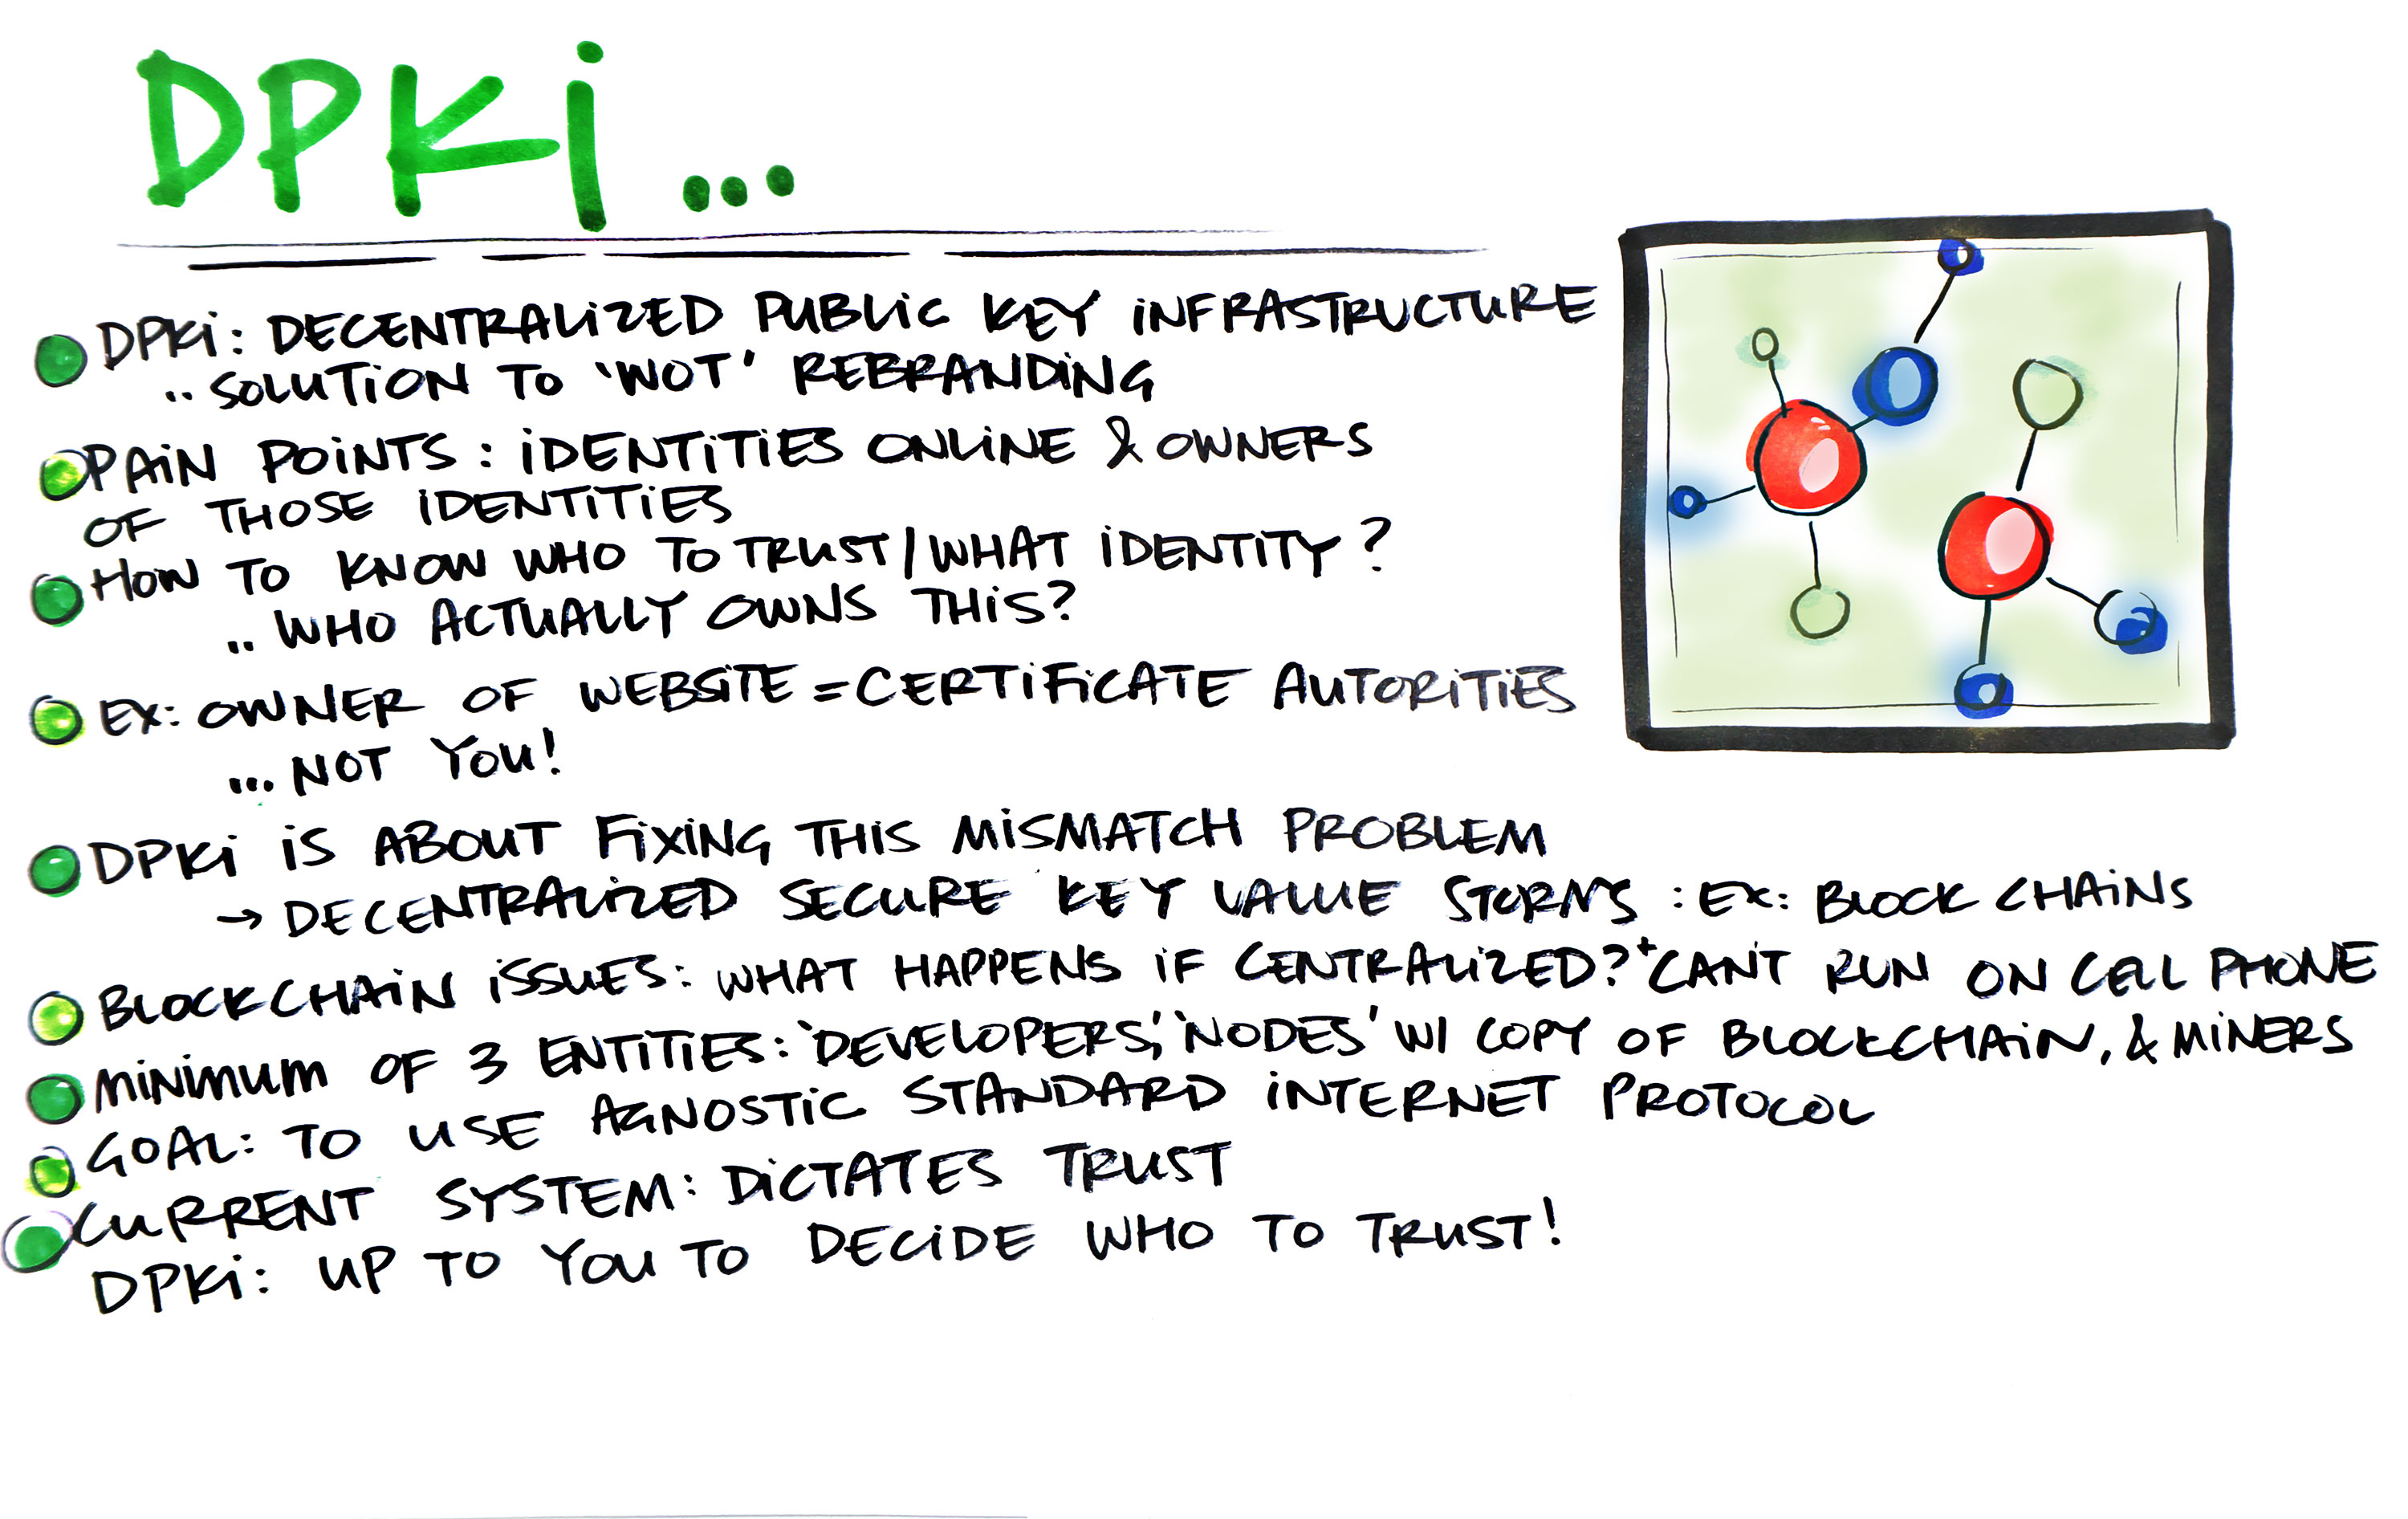 DPKi...
DPKi: DECENTRALiZED PUBLiC KEY iNFRASTRUCTURE
..SOLUTiON TO 'WOT' REBRANDiNG
PAiN POiNTS: iDENTiTiES ONLiNE & OWNERS
OF THOSE iDENTiTiES
HOW TO KNOW WHO TO TRUST/WHAT iDENTiTY?
..WHO ACTUALLY OWNS THiS?
EX: OWNER OF WEBSiTE = CERTiFiCATE AUTORiTiES
...NOT YOU!
DPKi iS ABOUT FiXiNG THiS MiSMATCH PROBLEM
→ DECENTRALiZED SECURE KEY VALUE : EX: BLOCK CHAiNS
BLOCKCHAiN iSSUES: WHAT HAPPENS iF CENTRALiZED? + CAN'T RUN ON CELL PHONE
MiNiMUM OF 3 ENTiTiES: 'DEVELOPERS', 'NODES' W/ COPY OF BLOCKCHAiN, & MiNERS
GOAL: TO USE AGNOSTiC STANDARD iNTERNET PROTOCOL
CURRENT SYSTEM: DiCTATES TRUST
DPKi: UP TO YOU TO DECiDE WHO TO TRUST!